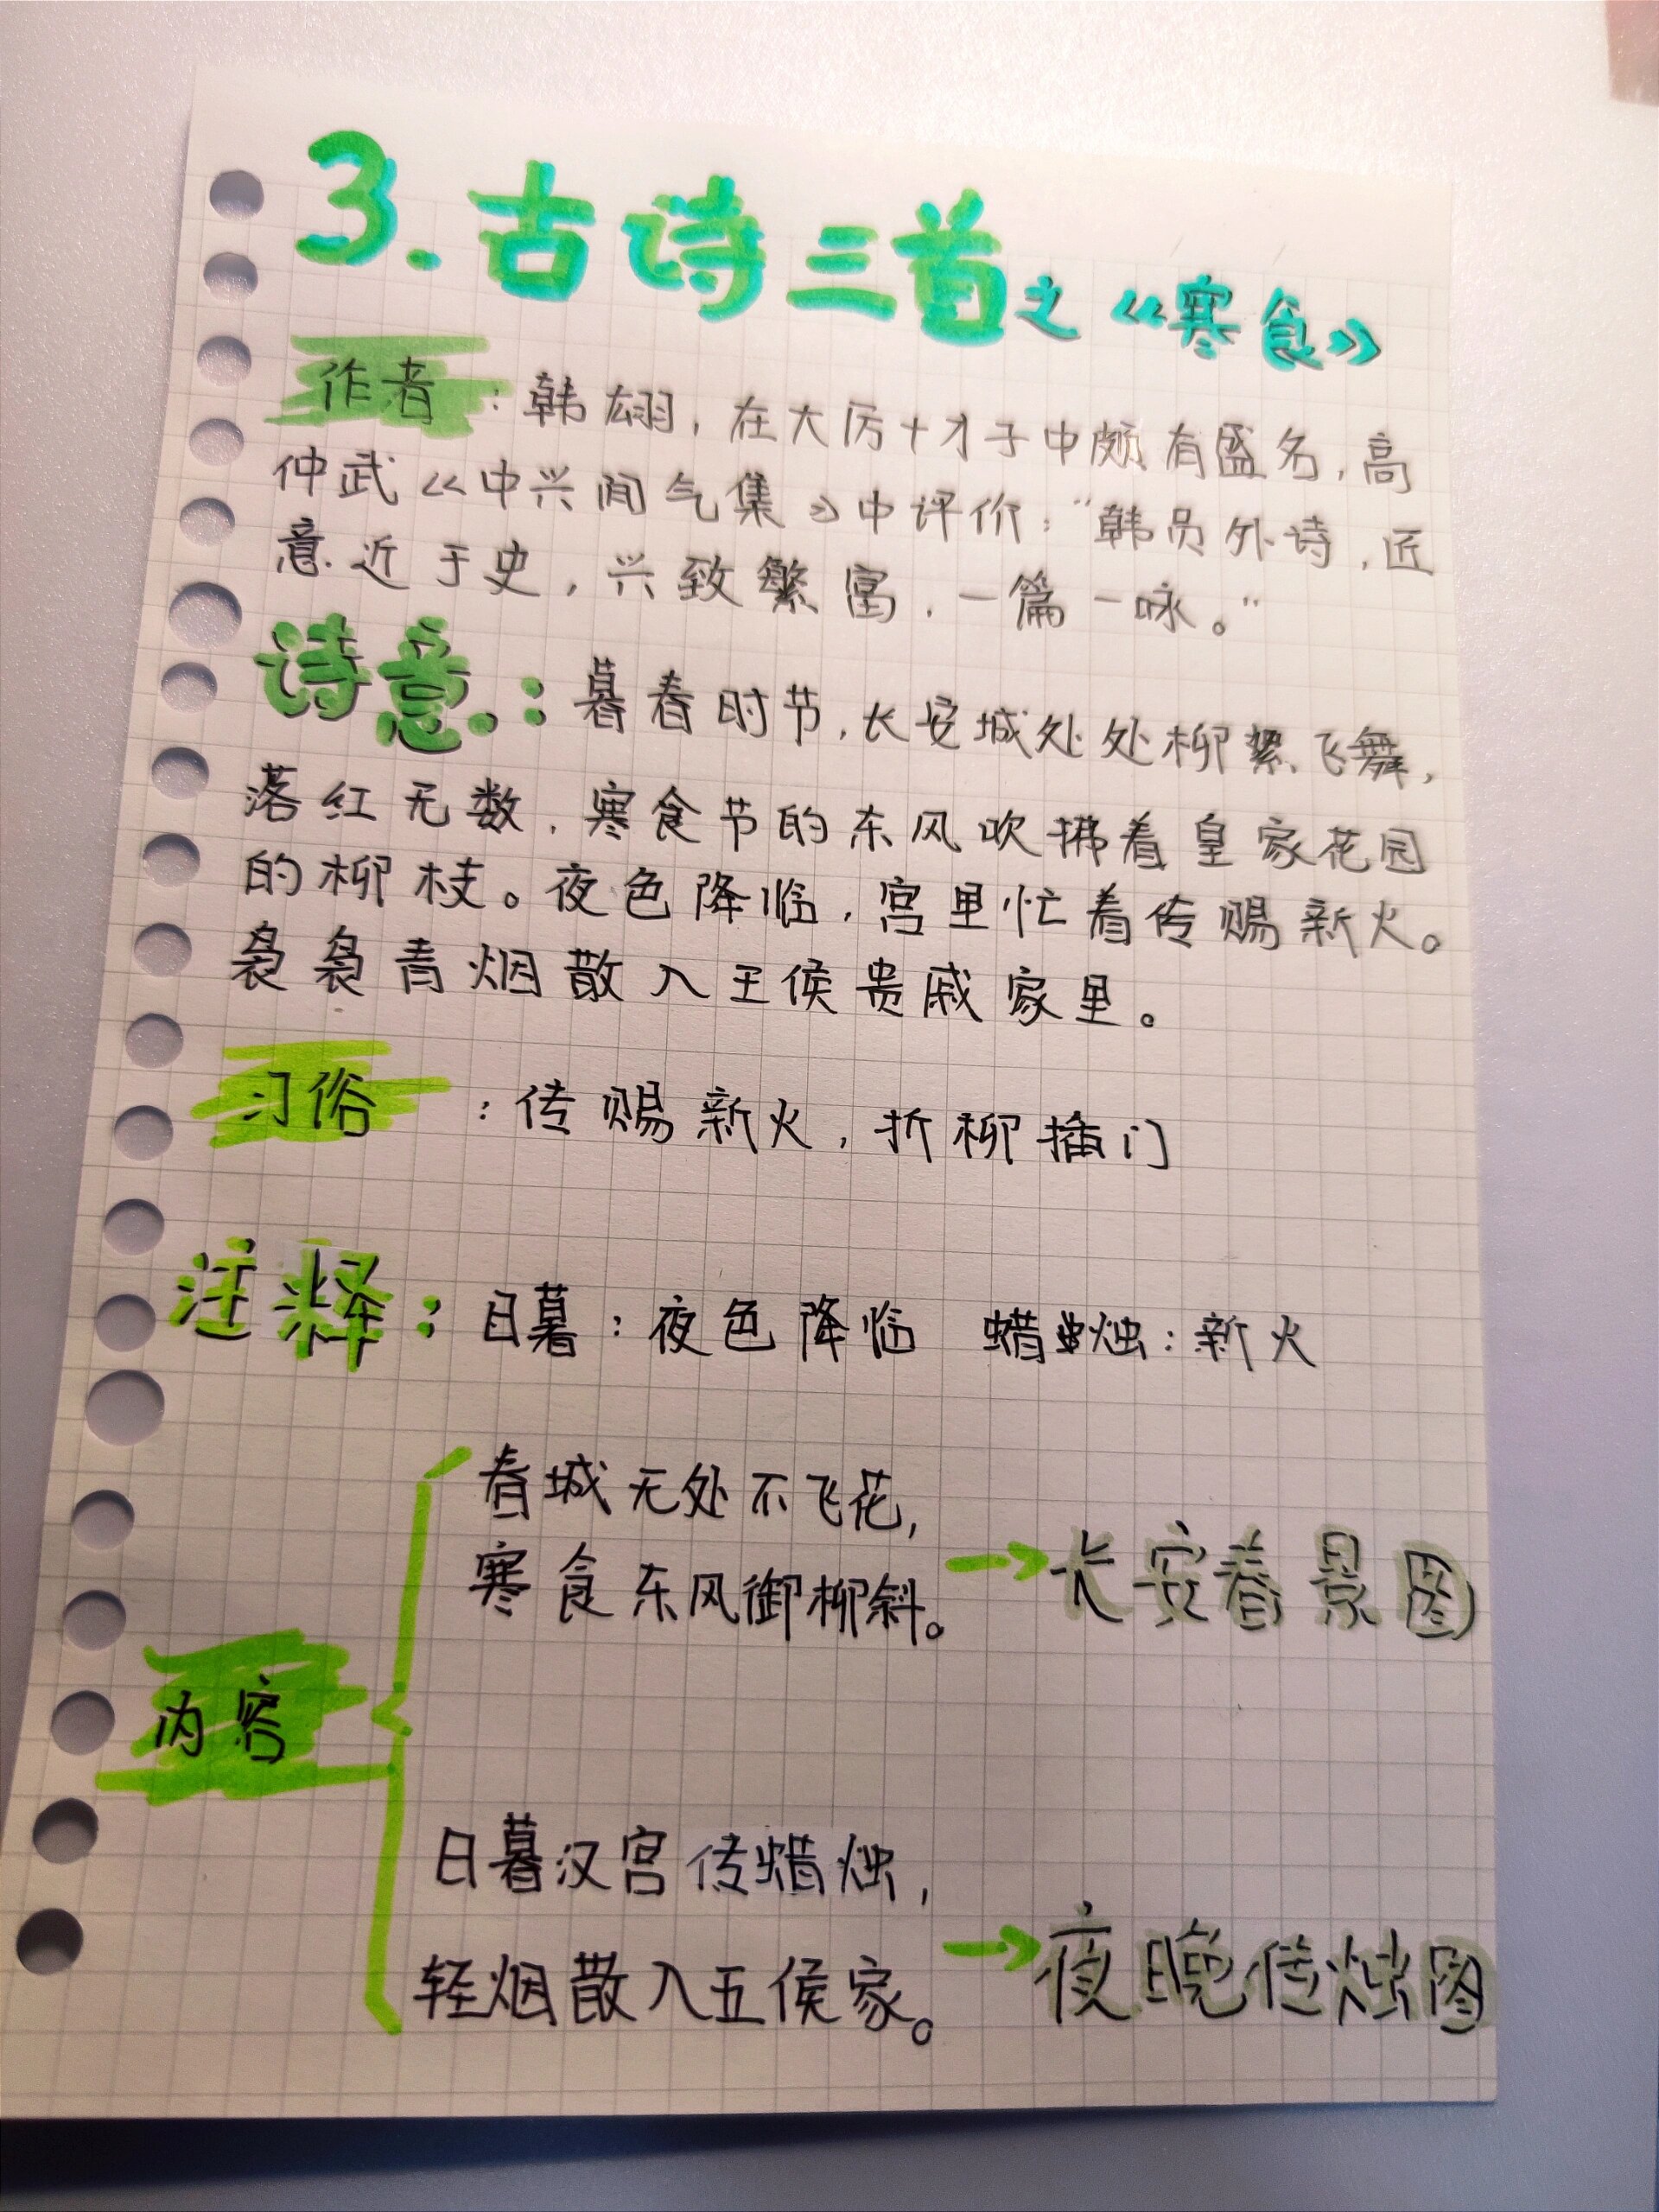 3.古诗三首之《寒食》
作者：韩翃，在大厉十才子中颇有盛名，高
仲武《中兴间气集》中评价："韩员外诗，匠
意近于史，兴致繁富，一篇一咏。"
诗意：暮春时节，长安城处处柳絮飞舞，
落红无数，寒食节的东风吹拂着皇家花园
的柳枝。夜色降临，宫里忙着传赐新火。
袅袅青烟散入王侯贵戚家里。
习俗：传赐新火，折柳插门
注释：日暮：夜色降临 蜡烛：新火
春城无处不飞花，
寒食东风御柳斜。→长安春景图
内容
日暮汉宫传蜡烛，
轻烟散入五侯家。→夜晚传烛图